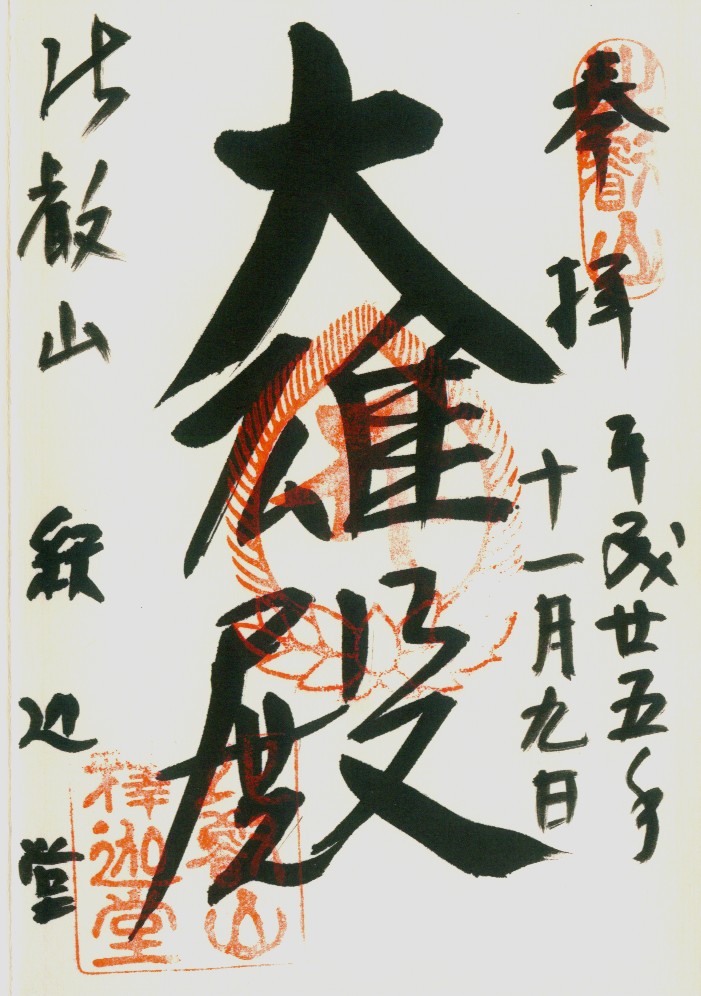 奉拝
比叡山
平成廿五年
十一月九日
大雄殿
比叡山 釈迦堂
比叡山
釋迦堂